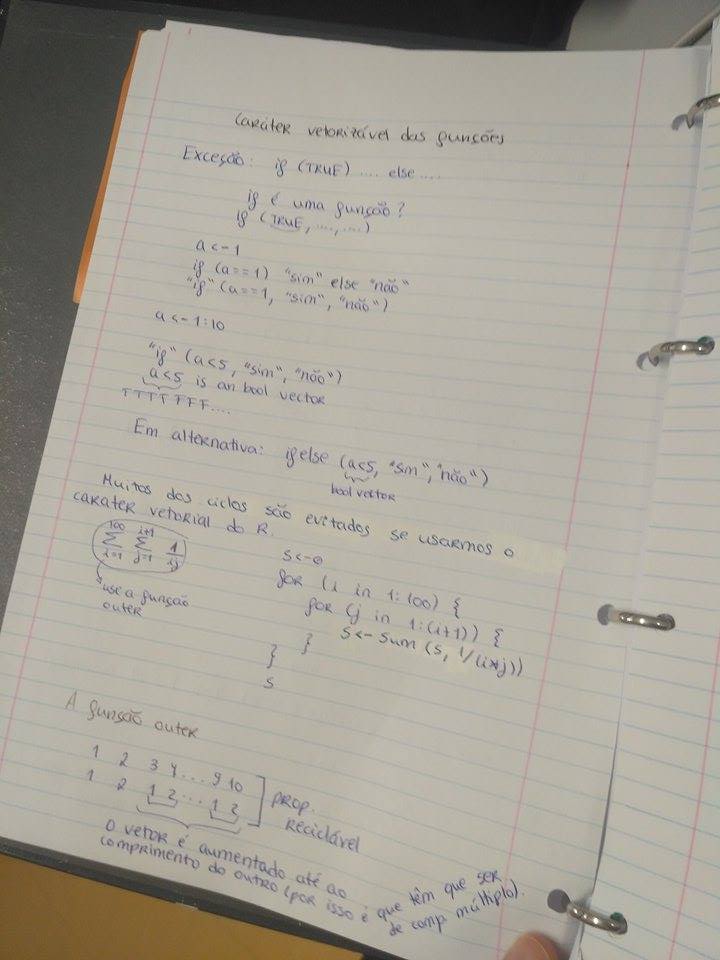 Caráter vetorizável das funções
Exceção: if (TRUE) .... else ....
if é uma função?
if (TRUE, ...., ....)
a <- 1
if (a==1) "sim" else "não"
"if" (a==1, "sim", "não")
a <- 1:10
"if" (a<5, "sim", "não")
a<5 is an bool vector
TTTT FFF....
Em alternativa: ifelse (a<5, "sim", "não")
bool vector
Muitos dos ciclos são evitados se usarmos o
carater vetorial do R.
100 i+1
Σ Σ 1/ij
i=1 j=1
use a função
outer
s<-0
for (i in 1:100) {
for (j in 1:(i+1)) {
s<- sum (s, 1/(i*j))
}
}
s
A função outer
1 2 3 4 ... 9 10
1 2 1 2 ... 1 2
prop.
reciclável
O vetor é aumentado até ao
comprimento do outro (por isso é que têm que ser
de comp. múltiplo).